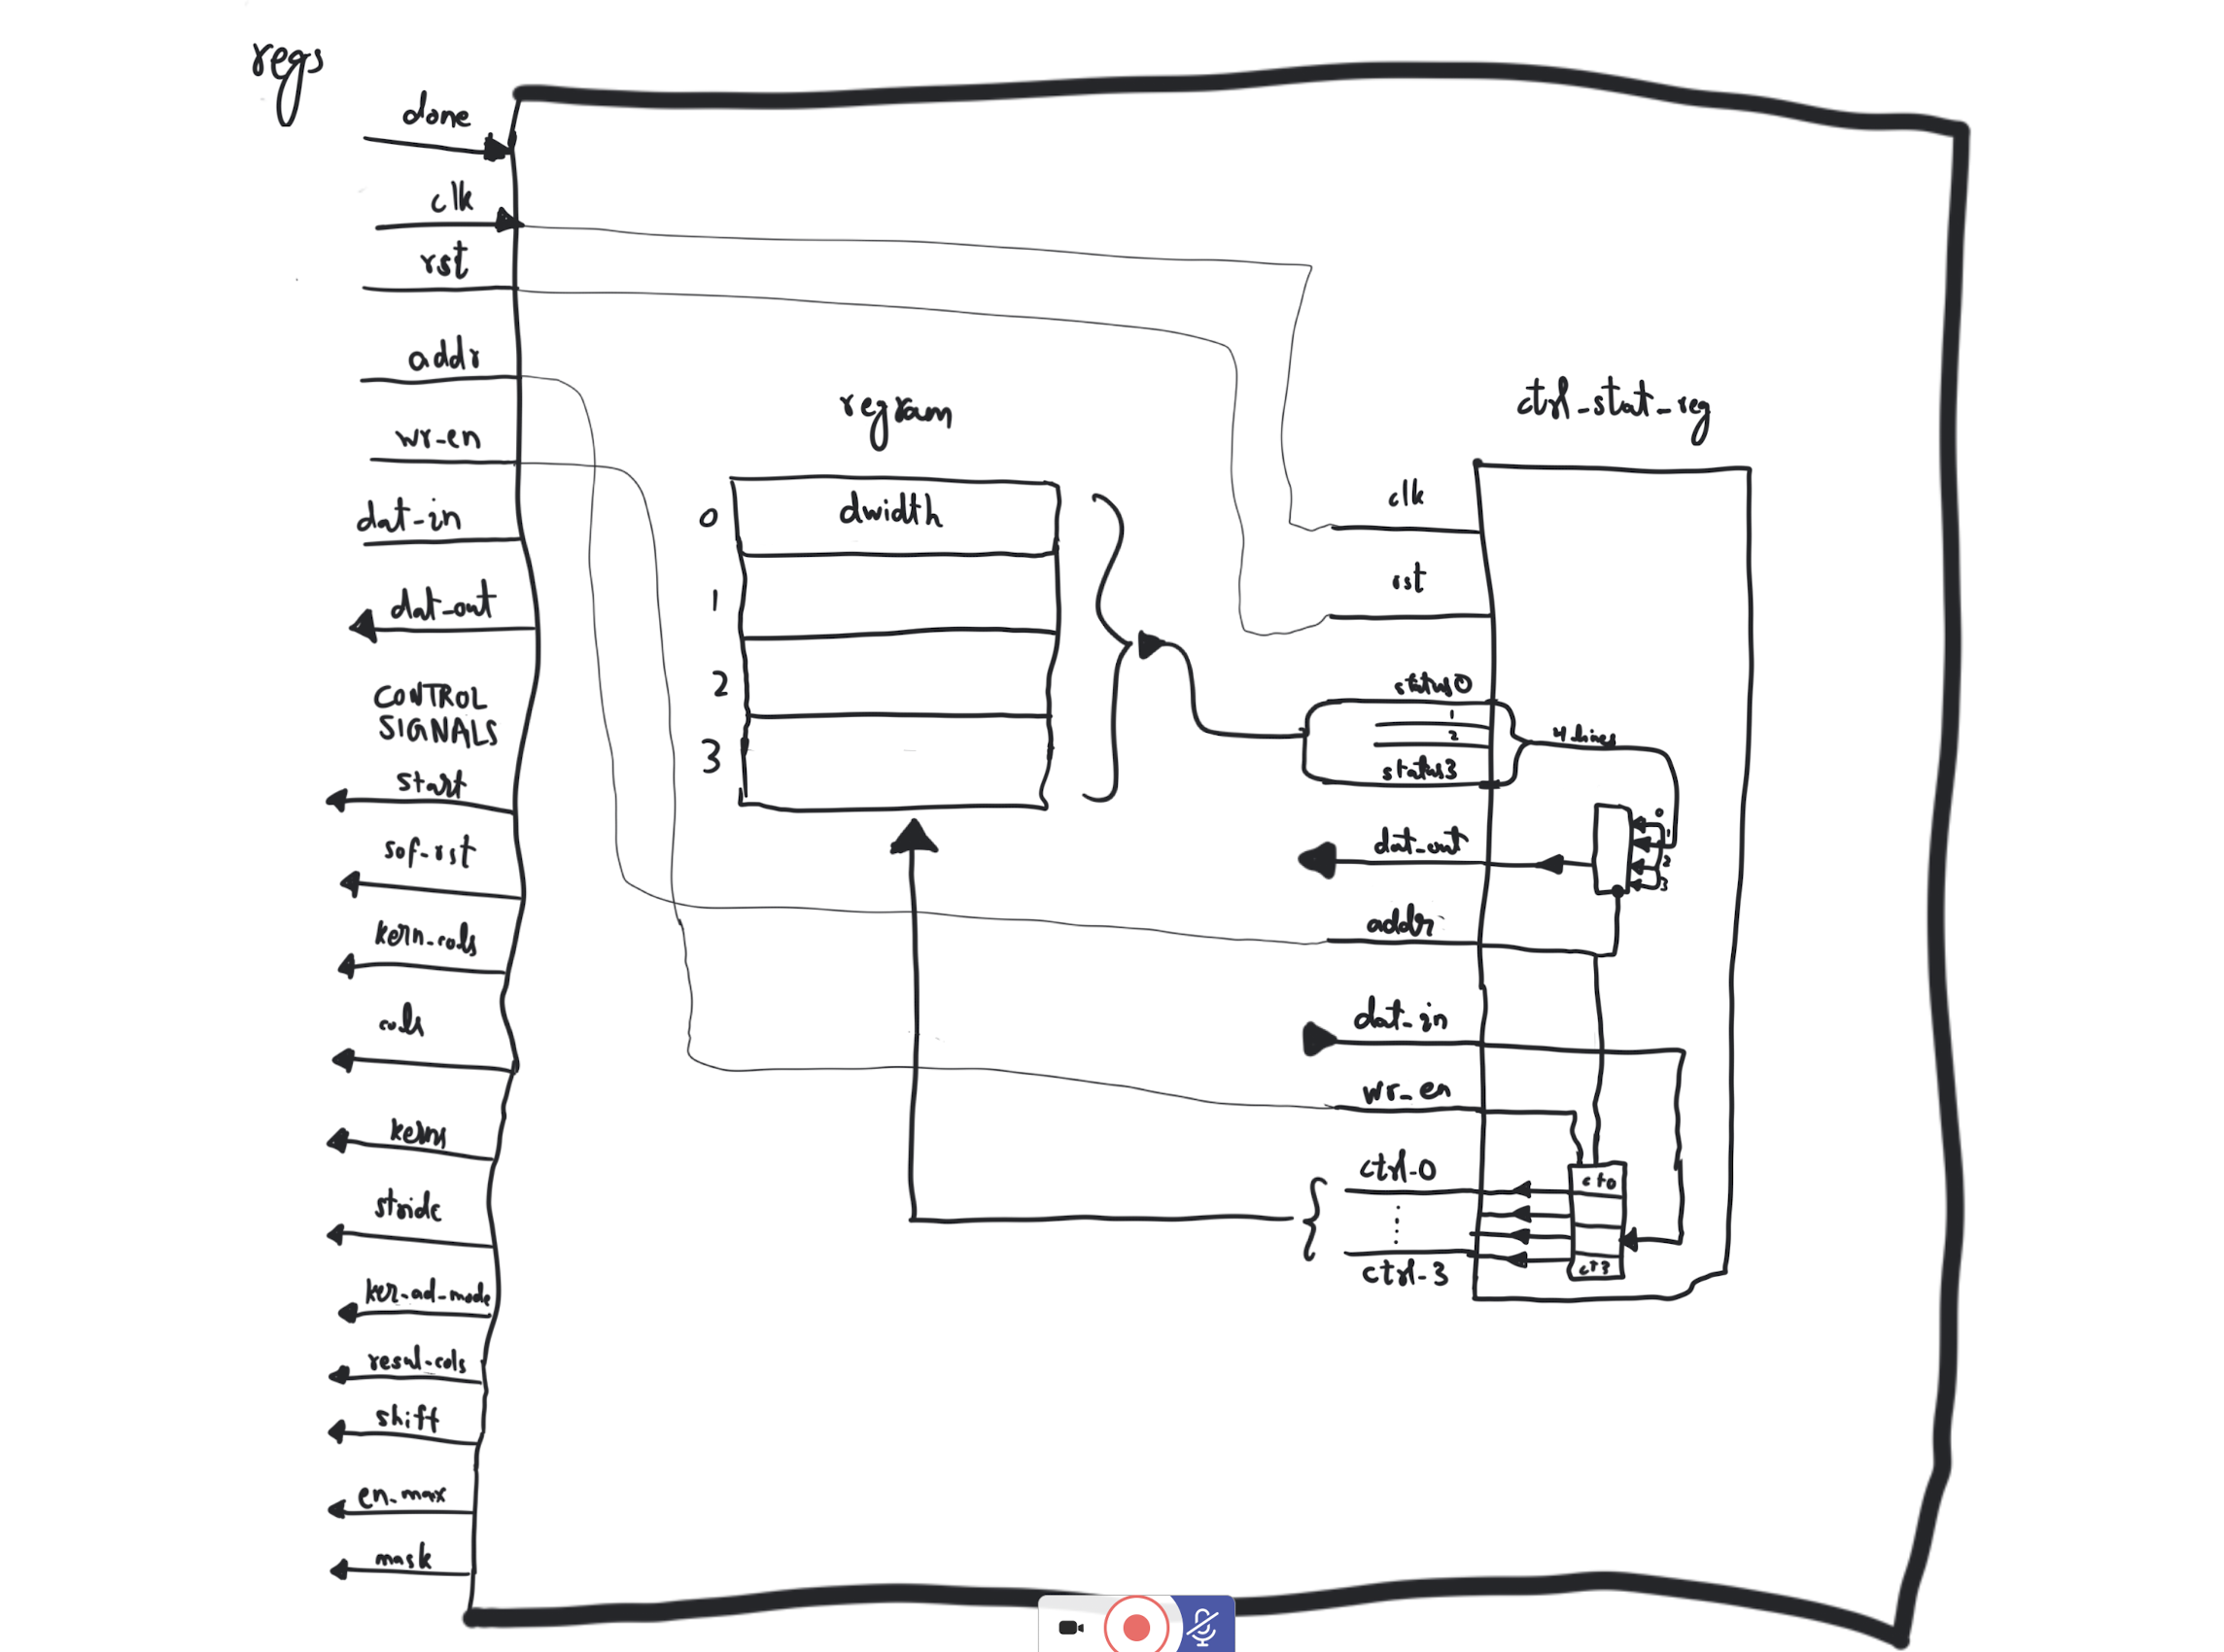 regs
done
clk
rst
addr
wr-en
dat-in
dat-out
CONTROL
SIGNALS
start
sof-rst
kern-cols
cols
kerns
stride
ker-ad-mode
resul-cols
shift
en-max
mask
regram
0
dwidth
1
2
3
ctrl_stat_reg
clk
rst
status0
1
2
status3
4 lines
dat-out
0
1
2
3
addr
dat-in
wr-en
ctrl-0
ctrl-3
ct0
ct3